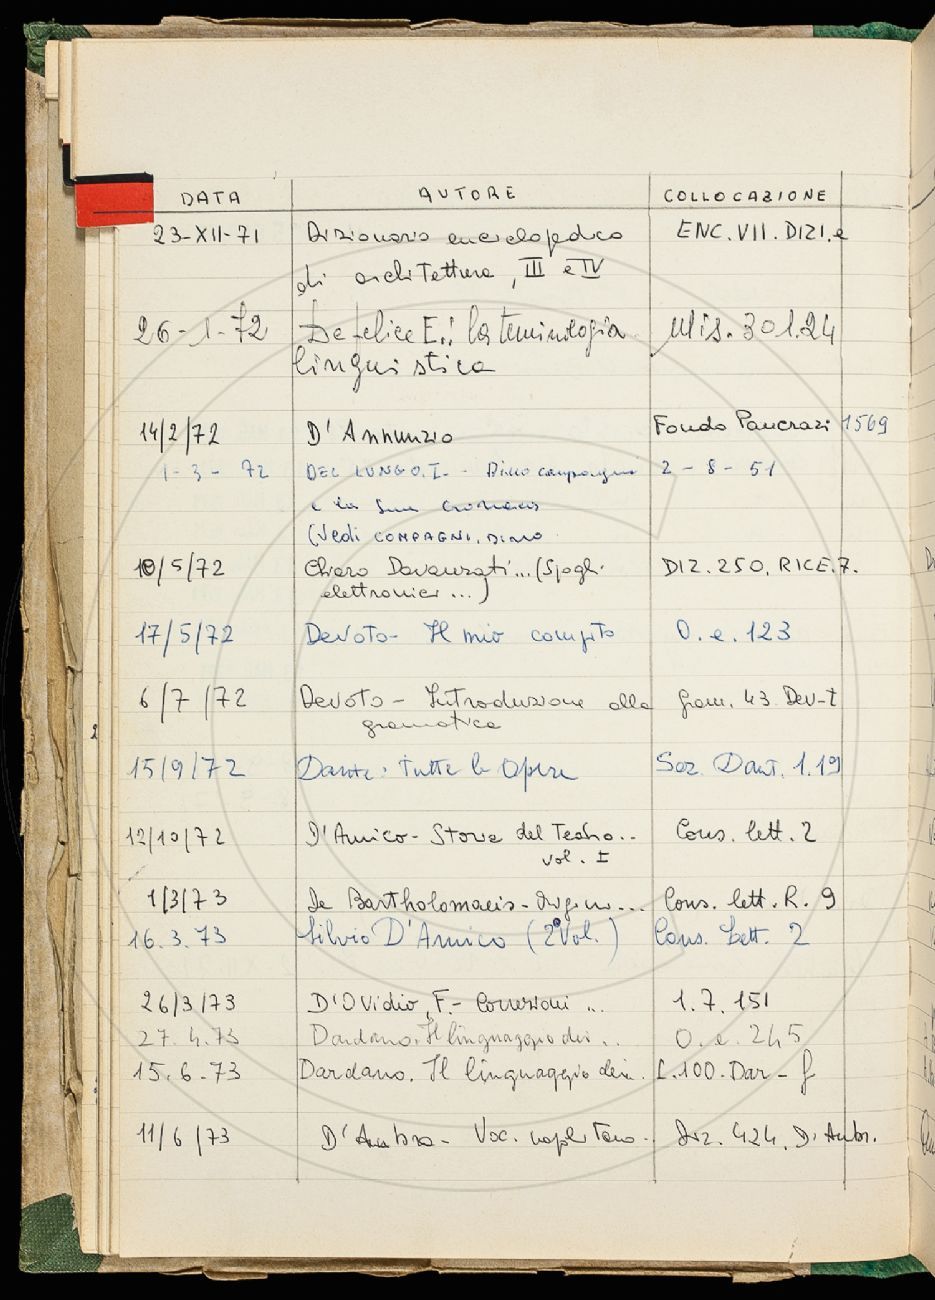 DATA AUTORE COLLOCAZIONE
23-XII-71 Dizionario enciclopedico ENC. VII. DIZI.e
di architettura, III e IV
26-1-72 De Felice E.: la teminologia Mis. 301.24
linguistica
14/2/72 D'Annunzio Fondo Pancrazi 1569
1-3-72 DEL LUNGO. I. - Dino Compagni 2-8-51
e la sua cronaca
(Vedi COMPAGNI, DINO
10/5/72 Chiaro Davanzati...(Spogli DIZ. 250. RICE. 7.
elettronici ...)
17/5/72 Devoto - Il mio compito O. e. 123
6/7/72 Devoto - Introduzione alla Gram. 43 Dev-t
gramatica
15/9/72 Dante: tutte le Opere Soz. Dant. 1.19
12/10/72 D'Amico - Storia del Teatro .. Cons. lett. 2
vol. I
1/3/73 De Bartholomaeis - Origini ... Cons. lett. R. 9
16.3.73 Silvio D'Amico (2° Vol.) Cons. Lett. 2
26/3/73 D'Ovidio, F. - Correzioni .. 1.7.151
27.4.73 Dardano. Il linguaggio dei .. O. e. 245
15.6-73 Dardano. Il linguaggio dei. L.100.Dar-f
11/6/73 D'Ambra - Voc. napoletano - Diz. 424. D'Ambr.